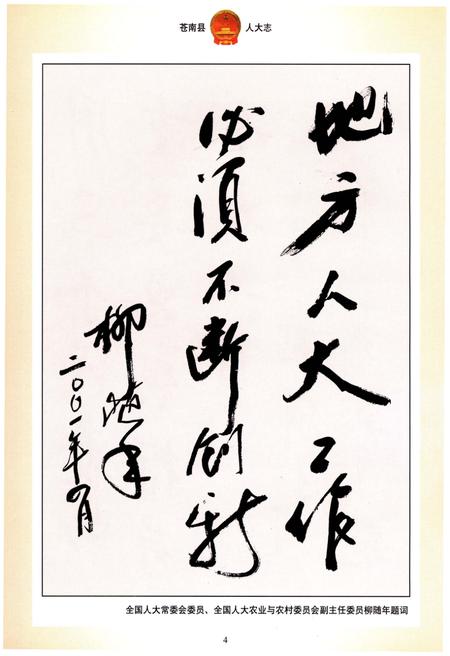 苍南县 人大志
地方人大工作
必须不断创新
柳随年
二〇〇一年八月
全国人大常委会委员、全国人大农业与农村委员会副主任委员柳随年题词
4